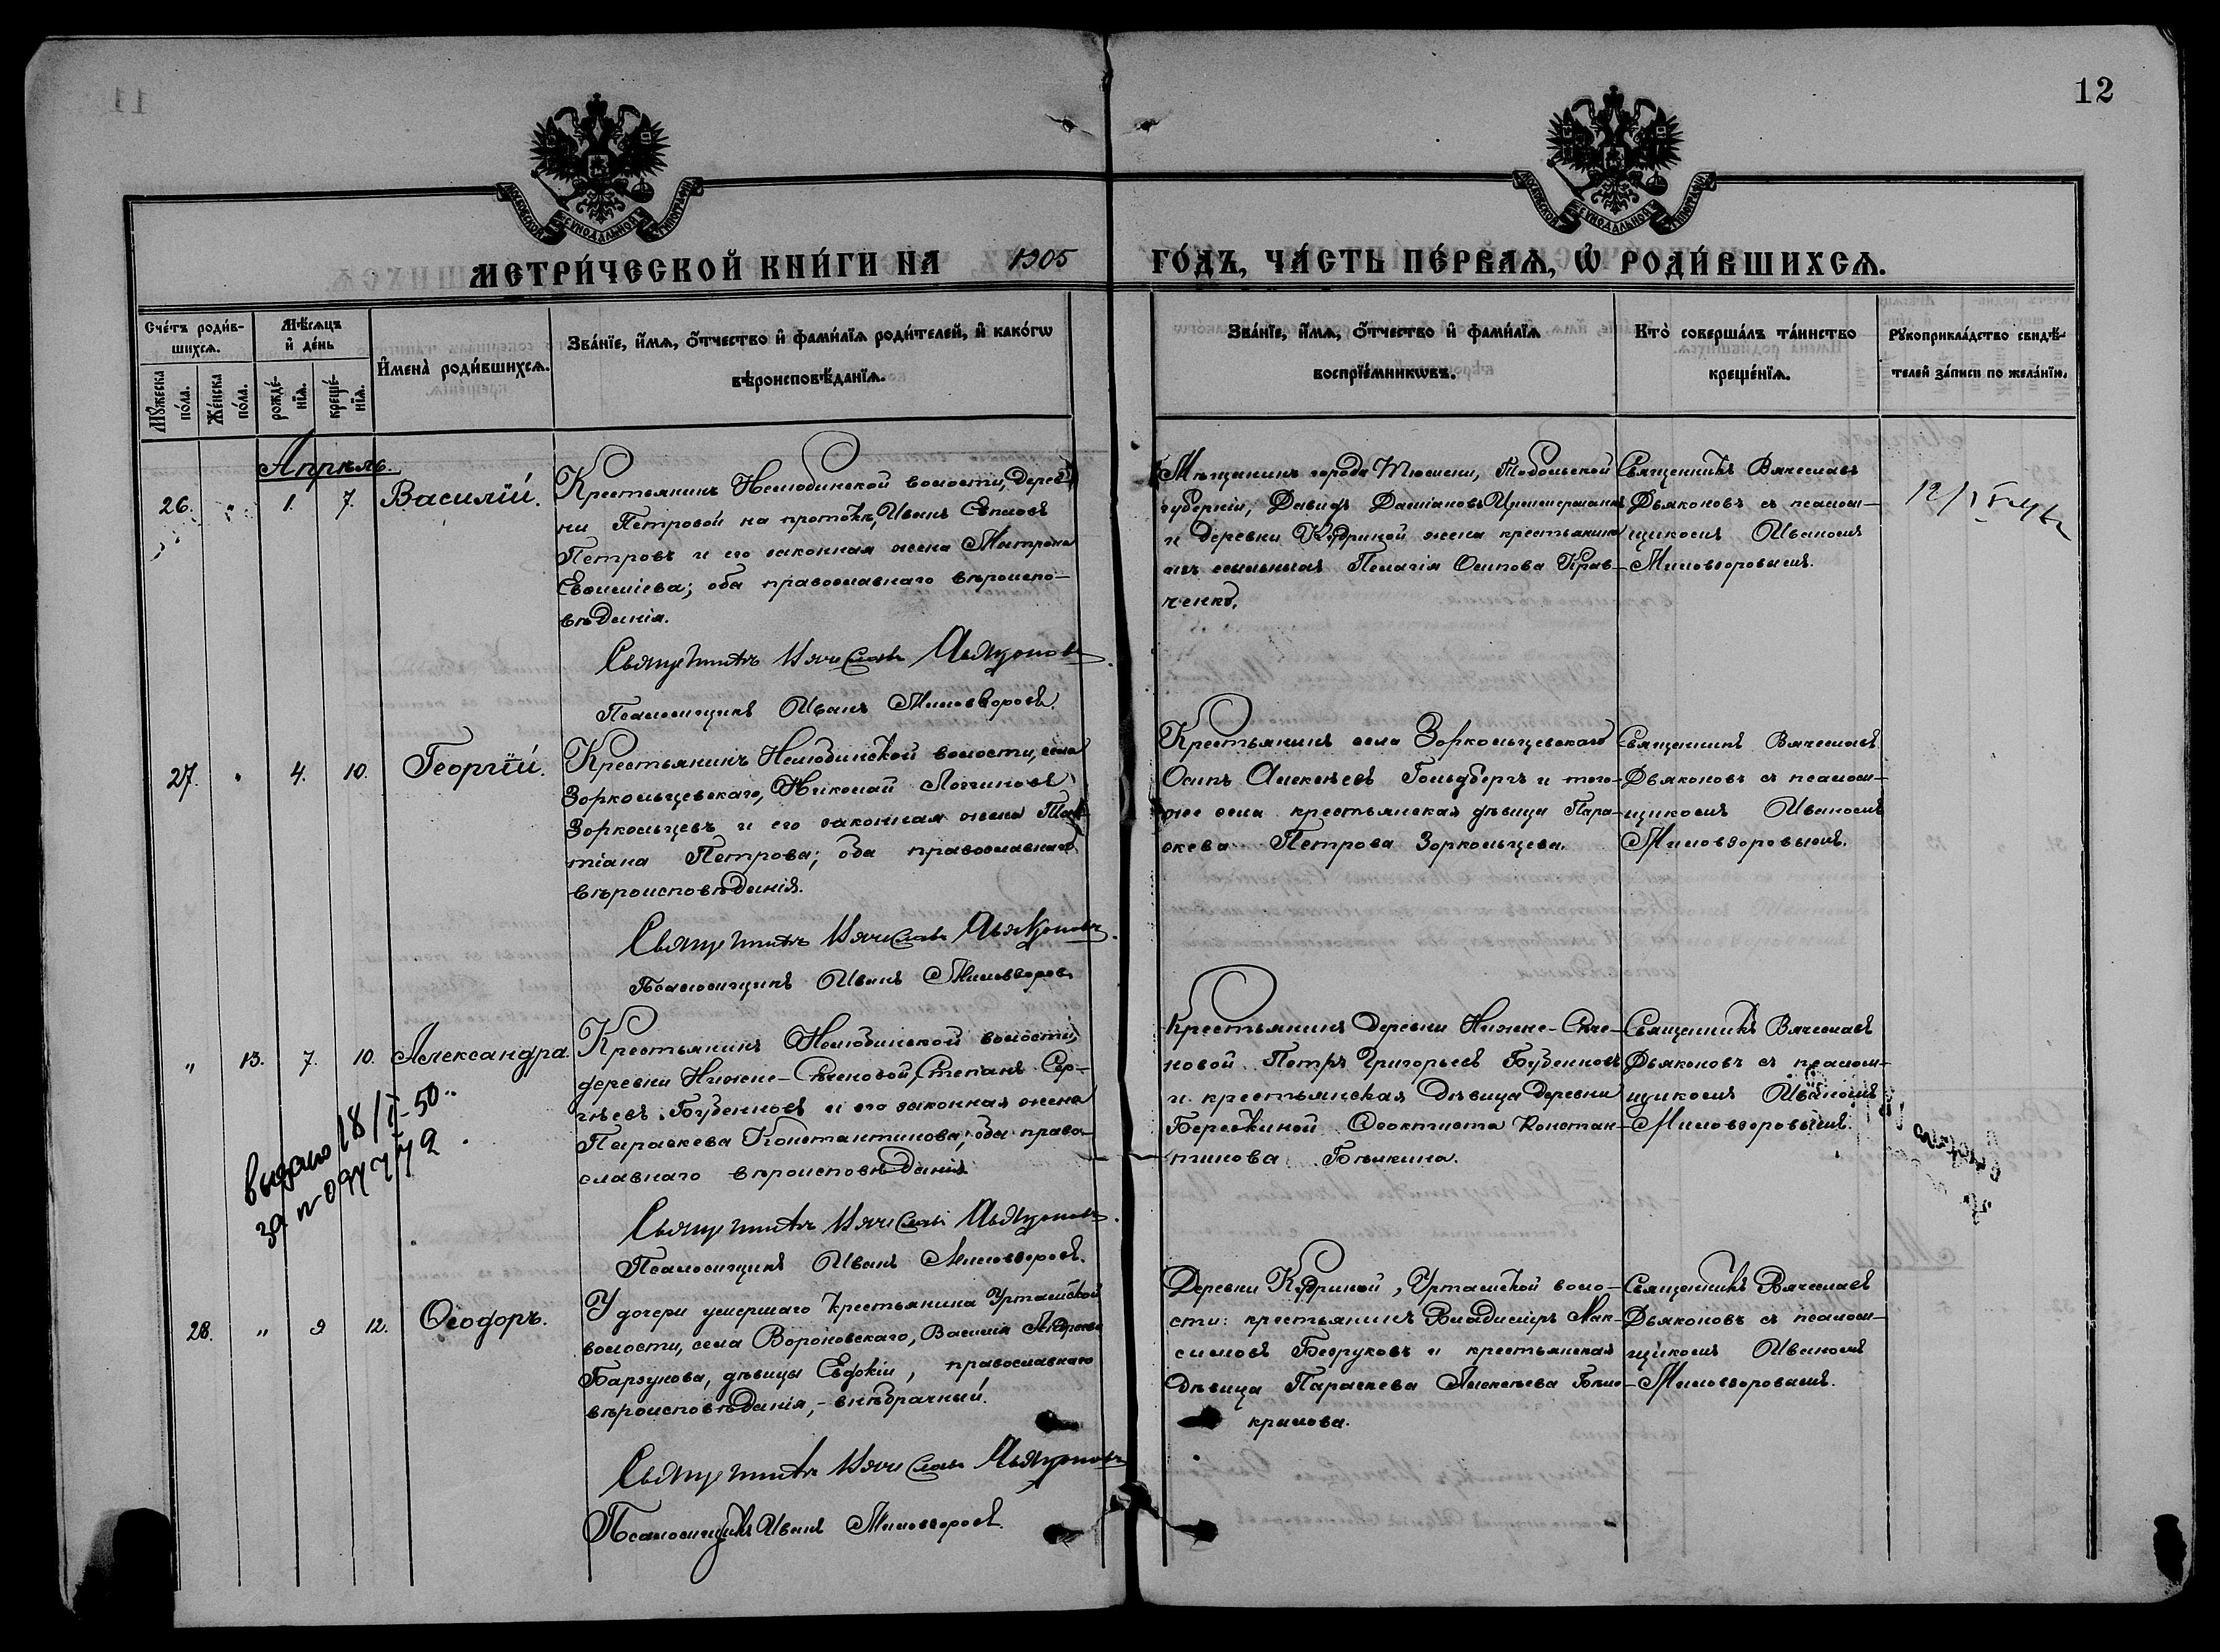 11
12
МОСКОВСКОЙ СУНОДАЛЬНОЙ ТИПОГРАФІИ
МОСКОВСКОЙ СУНОДАЛЬНОЙ ТИПОГРАФІИ
МЕТРИ́ЧЕСКОЙ КНИ́ГИ НА 1905 ГО́ДЪ, ЧА́СТЬ ПЕ́РВАѦ, Ѡ҆ РОДИ́ВШИХСѦ.
Сче́тъ роди́в-
шихсѧ.
Мꙋ́жеска по́ла.
Же́нска по́ла.
Мѣ́сѧцъ
и҆ де́нь
рожде́-
нїѧ.
креще́-
нїѧ.
И҆мена̀ роди́вшихсѧ.
Зва́нїе, и҆́мѧ, ѻ҆́тчество и҆ фами́лїѧ роди́телей, и҆ како́гѡ
вѣроисповѣ́данїѧ.
Зва́нїе, и҆́мѧ, ѻ҆́тчество и҆ фами́лїѧ
воспрїе́мникѡвъ.
Кто̀ соверша́лъ та́инство
креще́нїѧ.
Рꙋкоприкла́дство свидѣ́-
телей за́писи по жела́нїю.
Апрѣль.
26. " 1. 7. Василій.
Крестьянинъ Нелюбинской волости, дерев-
ни Петровой на протокѣ, Иванъ
Петровъ и его законная жена Матрона
Евѳиміева; оба православнаго вѣроиспо-
вѣданія.
Священникъ Вячеславъ Дьяконовъ.
Псаломщикъ Иванъ Миловзоровъ.
Мѣщанинъ города Тюмени, Тобольской
губерніи, Давидъ
и деревни Кудриной жена крестьянина
изъ ссыльныхъ Пелагія Осипова Крав-
ченко.
Священникъ Вячеславъ
Дьяконовъ съ псалом-
щикомъ Иваномъ
Миловзоровымъ.
27. " 4. 10. Георгій.
Крестьянинъ Нелюбинской волости, села
Зоркольцевскаго, Николай Логиновъ
Зоркольцевъ и его законная жена Та-
тіана Петрова; оба православнаго
вѣроисповѣданія.
Священникъ Вячеславъ Дьяконовъ.
Псаломщикъ Иванъ Миловзоровъ.
Крестьянинъ села Зоркольцевскаго
Осипъ Алексѣевъ Гольдбергъ и того-
же села крестьянская дѣвица Пара-
скева Петрова Зоркольцева.
Священникъ Вячеславъ
Дьяконовъ съ псалом-
щикомъ Иваномъ
Миловзоровымъ.
" 13. 7. 10. Александра.
Крестьянинъ Нелюбинской волости,
деревни Нижне-Сѣченовой, Степанъ Сер-
гѣевъ Бубенновъ и его законная жена
Параскева Константинова; оба право-
славнаго вѣроисповѣданія.
Священникъ Вячеславъ Дьяконовъ.
Псаломщикъ Иванъ Миловзоровъ.
Крестьянинъ деревни Нижне-Сѣче-
новой Петръ Григорьевъ Бубенновъ
и крестьянская дѣвица деревни
Березкиной Ѳеоктиста Констан-
тинова Бѣлкина.
Священникъ Вячеславъ
Дьяконовъ съ псалом-
щикомъ Иваномъ
Миловзоровымъ.
выдано 18/I-50
за №
28. " 9 12. Ѳеодоръ.
У дочери умершаго крестьянина Уртамской
волости, села Вороновскаго, Василія Андреева
Барзунова, дѣвицы Евдокіи, православнаго
вѣроисповѣданія, - внѣбрачный.
Священникъ Вячеславъ Дьяконовъ
Псаломщикъ Иванъ Миловзоровъ.
Деревни Кудриной, Уртамской воло-
сти: крестьянинъ Владиміръ Мак-
симовъ Безруковъ и крестьянская
дѣвица Параскева Алексѣева Бѣло-
крылова.
Священникъ Вячеславъ
Дьяконовъ съ псалом-
щикомъ Иваномъ
Миловзоровымъ.